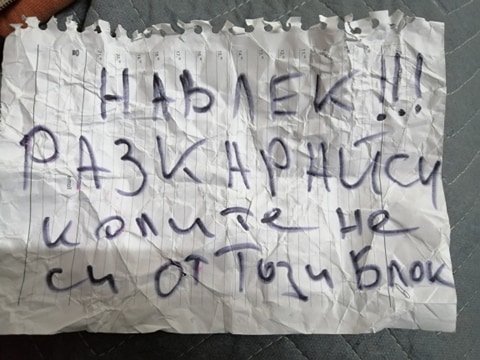 НАВЛЕК!!!
РАЗКАРАЙ СИ
колите не
си от този Блок